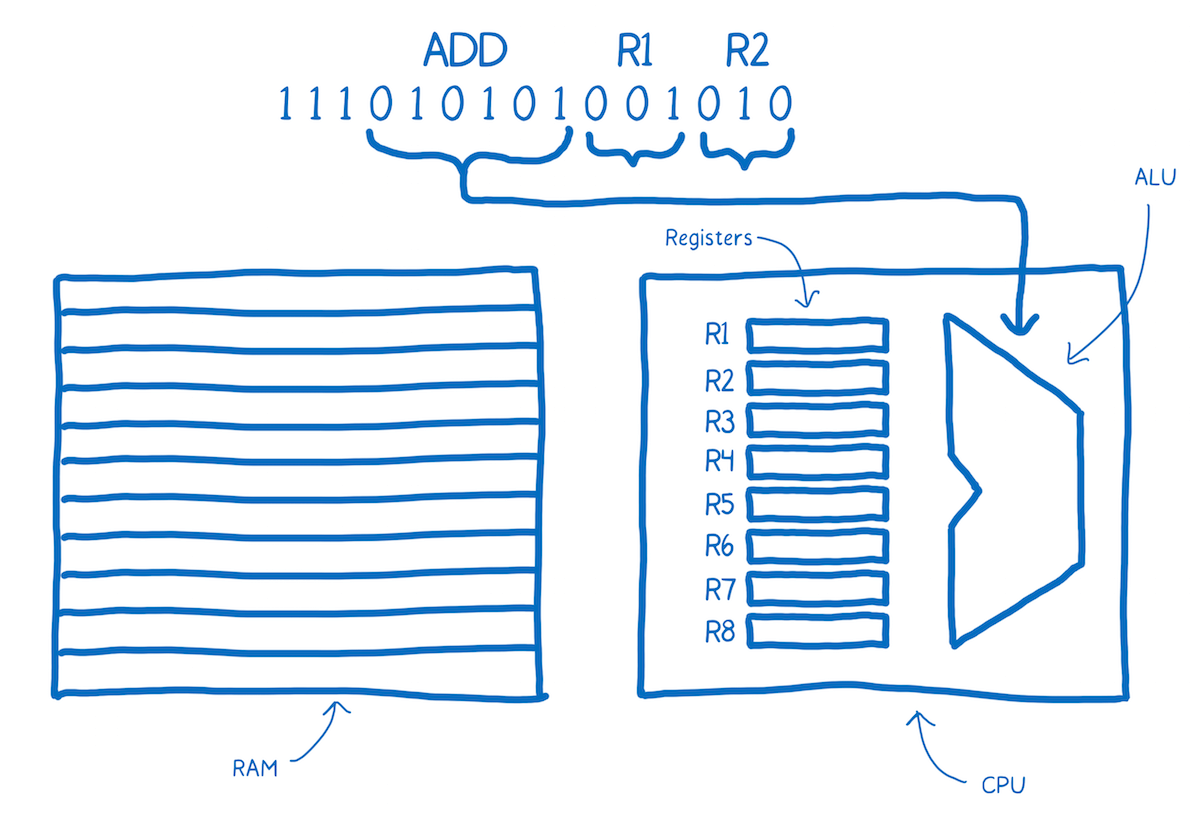 ADD R1 R2
111010101001010
ALU
Registers
R1
R2
R3
R4
R5
R6
R7
R8
RAM
CPU